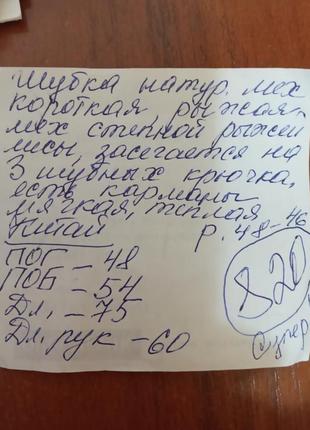 Шубка натур. мех
короткая, рыжая,
мех степной рыжей
лисы, засегается на
3 шубных крючка,
есть карманы
мягкая, теплая
Китай р. 48-46
ПОГ - 48
ПОБ - 54
Дл. - 75
Дл. рук - 60
820